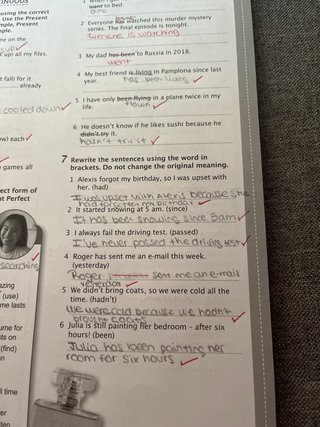 INUOUS
using the correct
Use the Present
mple, Present
mple.
ne on the
up) all my files.
t fall) for it
already
cooled down
ow) each
games all
ect form of
t Perfect
searching
azing
(use)
me lasts
ume for
sts on
(find)
n
ll time
er
ten
went to bed.
2 Everyone watched this murder mystery
series. The final episode is tonight.
Everyone is watching
3 My dad has been to Russia in 2018.
went
4 My best friend is living in Pamplona since last
year. has been living
5 I have only been flying in a plane twice in my
life. flown
6 He doesn't know if he likes sushi because he
didn't try it.
hasn't try it
7 Rewrite the sentences using the word in
brackets. Do not change the original meaning.
1 Alexis forgot my birthday, so I was upset with
her. (had)
I was upset with Alexis because she
had forgotten my birthday
2 It started snowing at 5 am. (since)
It has been snowing since 5am
3 I always fail the driving test. (passed)
I've never passed the driving test
4 Roger has sent me an e-mail this week.
(yesterday)
Roger sent me an e-mail
yesterday
5 We didn't bring coats, so we were cold all the
time. (hadn't)
We were cold because we hadn't
coats
6 Julia is still painting her bedroom – after six
hours! (been)
Julia has been painting her
room for six hours